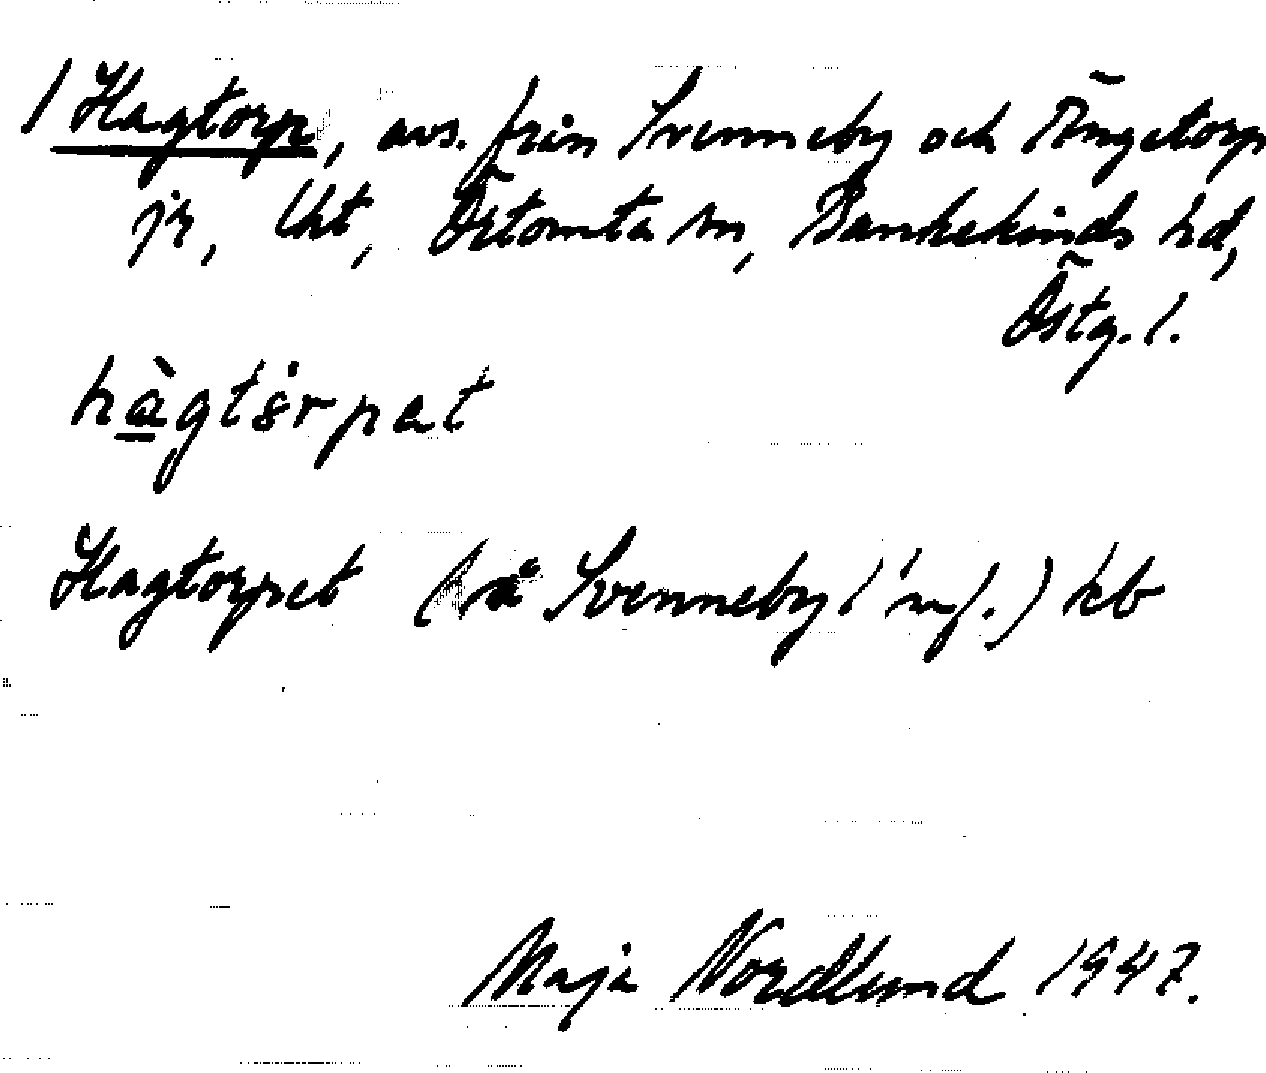 / Hagtorp, avs. från Svenneby och Ängetorp
jr, lht, Östomta sn, Bankekinds hd,
Östg. l.
hàgtårpat
Hagtorpet (å Svenneby / mf.) kb
Maja Nordlund 1947.